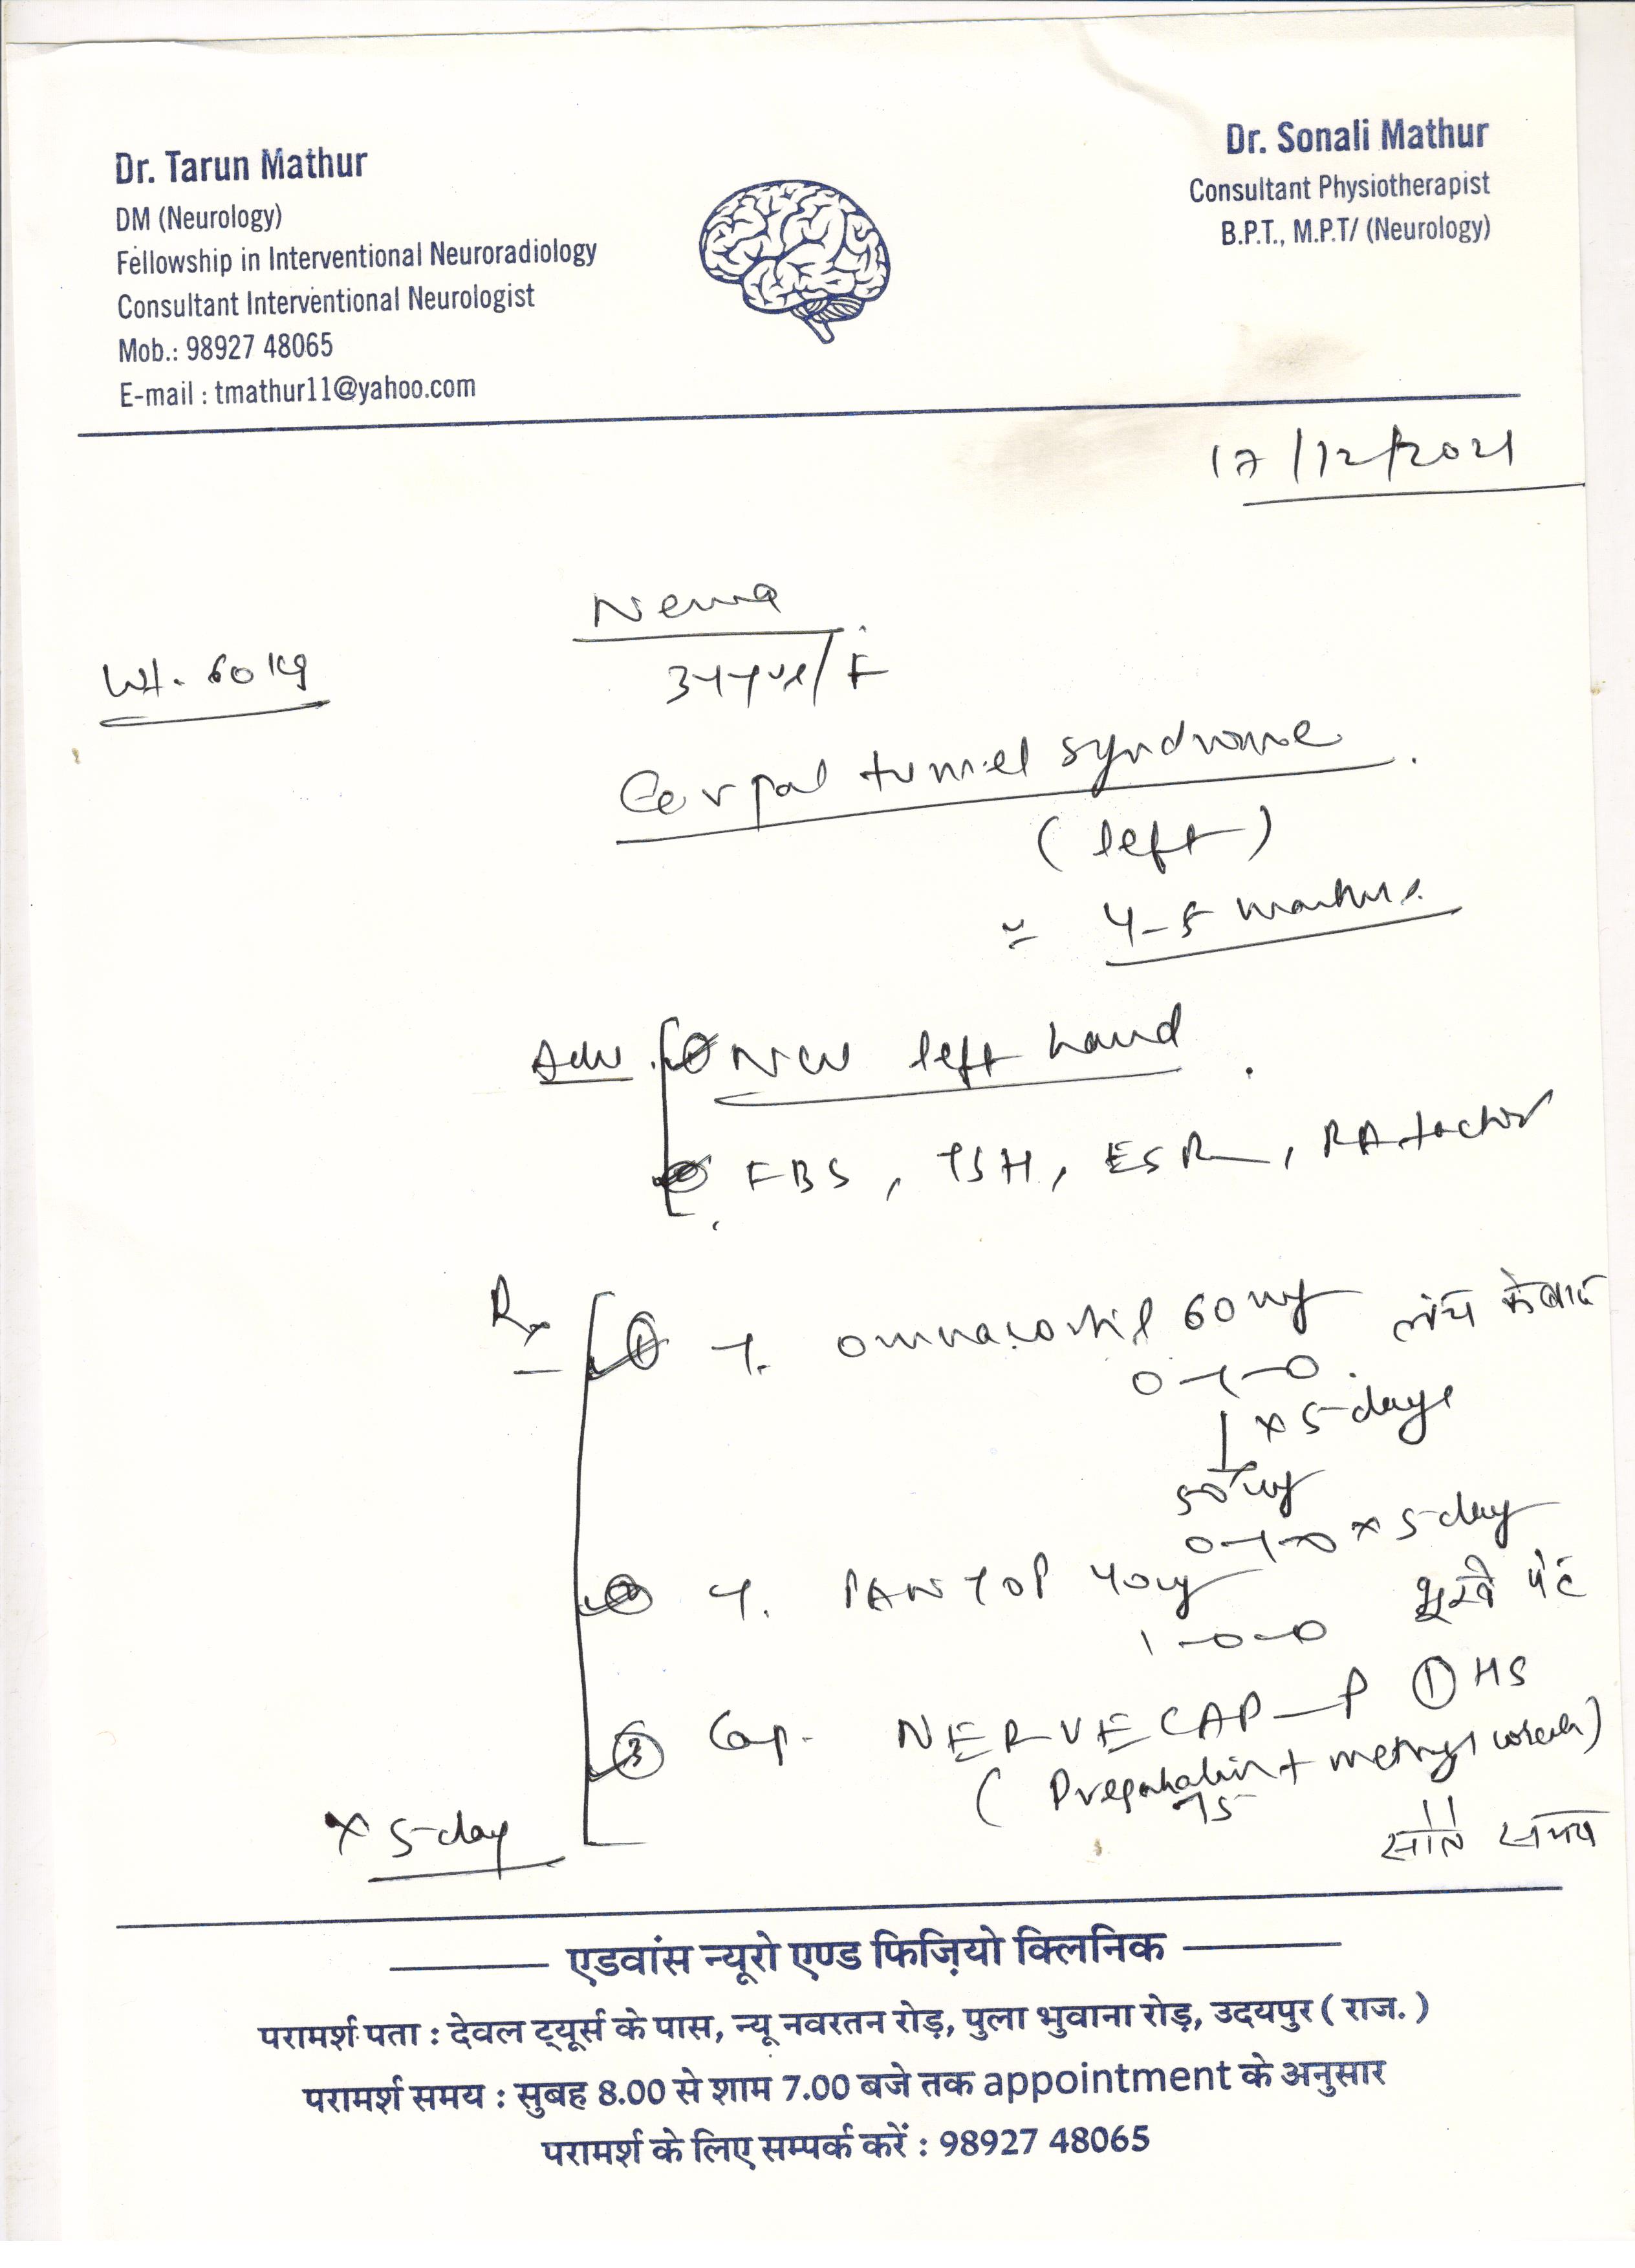 Dr. Tarun Mathur
DM (Neurology)
Fellowship in Interventional Neuroradiology
Consultant Interventional Neurologist
Mob.: 98927 48065
E-mail : tmathur11@yahoo.com
Dr. Sonali Mathur
Consultant Physiotherapist
B.P.T., M.P.T/ (Neurology)
17/12/2021
Wt. 60 kg
34 yrs/F
Carpal tunnel syndrome.
(left)
4-5 months.
Adv. ① left hand
② FBS, TSH, ESR, RA factor
Rx
① T. omnacortil 60 mg लंच के बाद
0-1-0
↓ x 5-days
50 mg
0-1-0 x 5-day
② T. PANTOP 40 mg भूखे पेट
1-0-0
③ Cap. NERVECAP-P ① HS
75
सोते समय
x 5-day
एडवांस न्यूरो एण्ड फिज़ियो क्लिनिक
परामर्श पता : देवल ट्यूर्स के पास, न्यू नवरतन रोड़, पुला भुवाना रोड़, उदयपुर ( राज. )
परामर्श समय : सुबह 8.00 से शाम 7.00 बजे तक appointment के अनुसार
परामर्श के लिए सम्पर्क करें : 98927 48065